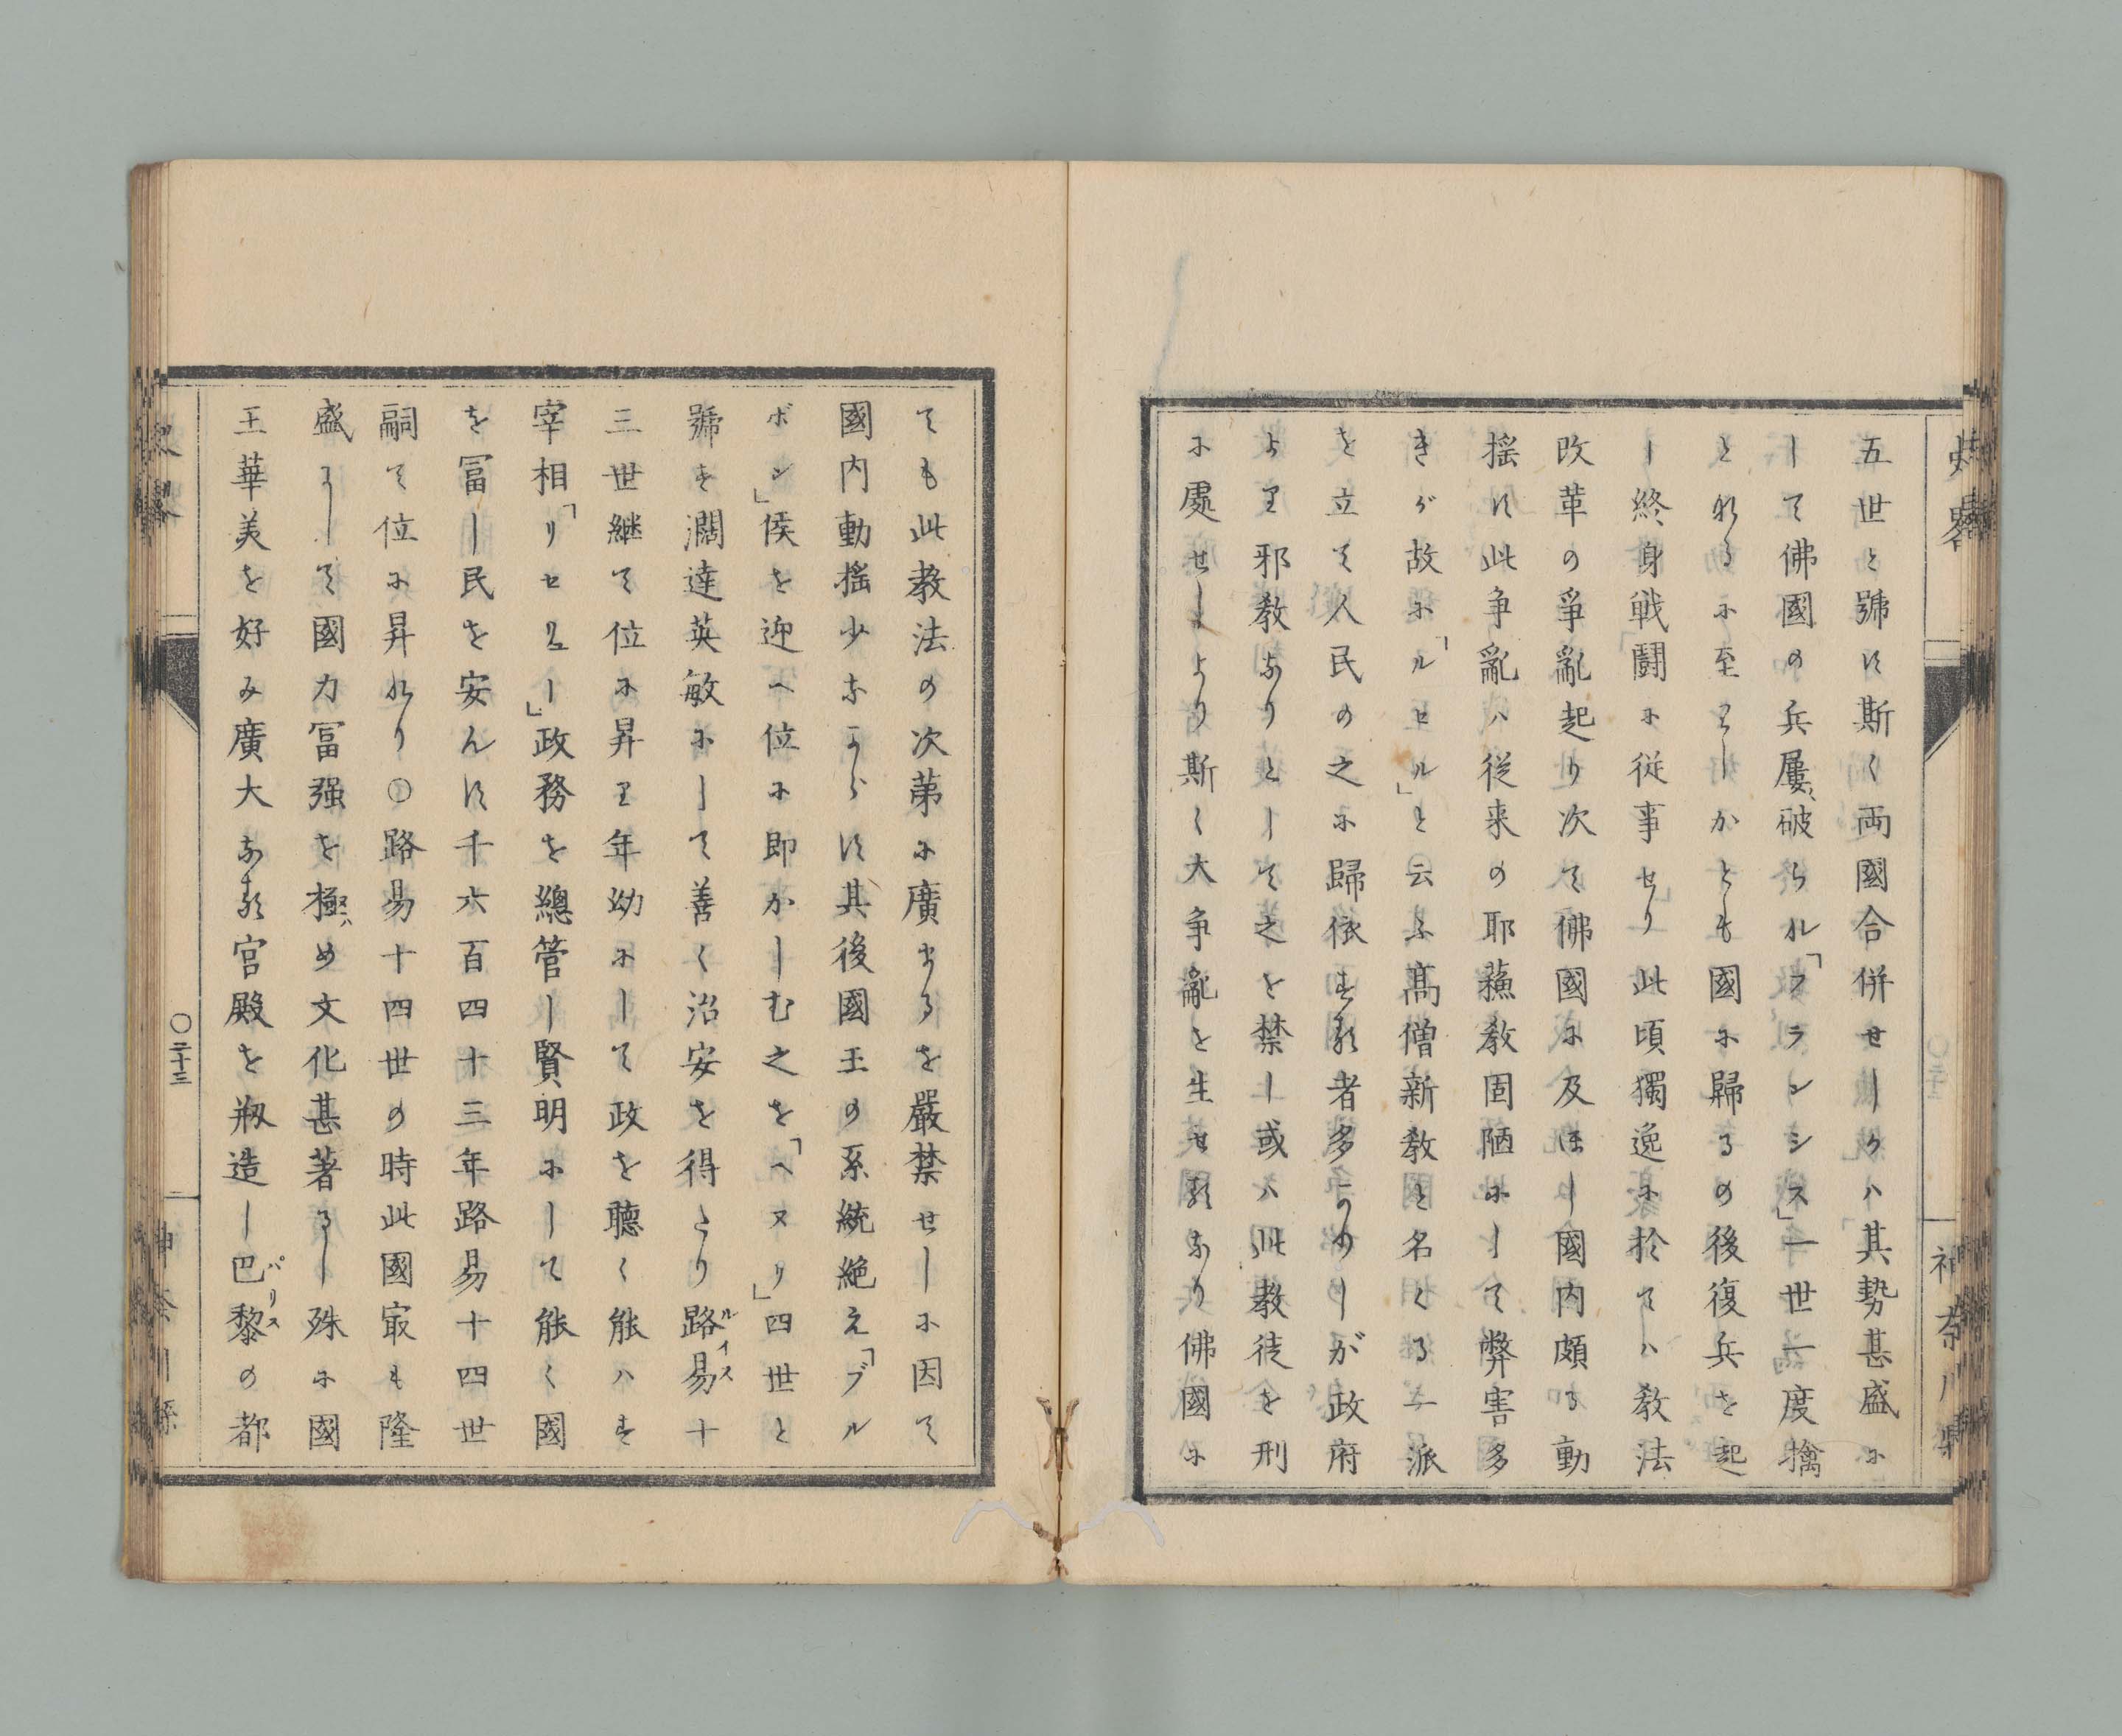 史畧
神奈川縣
五世と號す斯く両國合併せしかハ其勢甚盛に
して佛國の兵屢〻破らル「フランシス」一世一度擒
となるに至りしかとも國に歸るの後復兵を起
し終身戦闘に従事せり此頃獨逸に於てハ教法
改革の爭亂起り次て佛國に及ほし國内頗る動
揺す此争亂ハ従来の耶蘓教固陋にして弊害多
きが故に「ルセル」と云ふ髙僧新教と名くる一派
を立て人民の之に歸依する者多かりしが政府
より邪教なりとして之を禁し或ハ此教徒を刑
に處せしより斯く大争亂を生せるなり佛國に
ても此教法の次第に廣まるを嚴禁せしに因て
國内動揺少なからす其後國王の系統絶え「ブル
ボン」侯を迎へ位に即かしむ之を「ヘヌリ」四世と
號す濶達英敏にして善く治安を得たり路易十
ルイス
三世継て位に昇り年幼にして政を聴く能ハす
宰相「リセロー」政務を總管し賢明にして能く國
を冨し民を安んす千六百四十三年路易十四世
嗣て位に昇れり〇路易十四世の時此國冣も隆
盛にして國力冨强を極め文化甚著るし殊に國
王華美を好み廣大なる宮殿を剏造し巴黎の都
パリス
史畧
〇二十三
神奈川縣